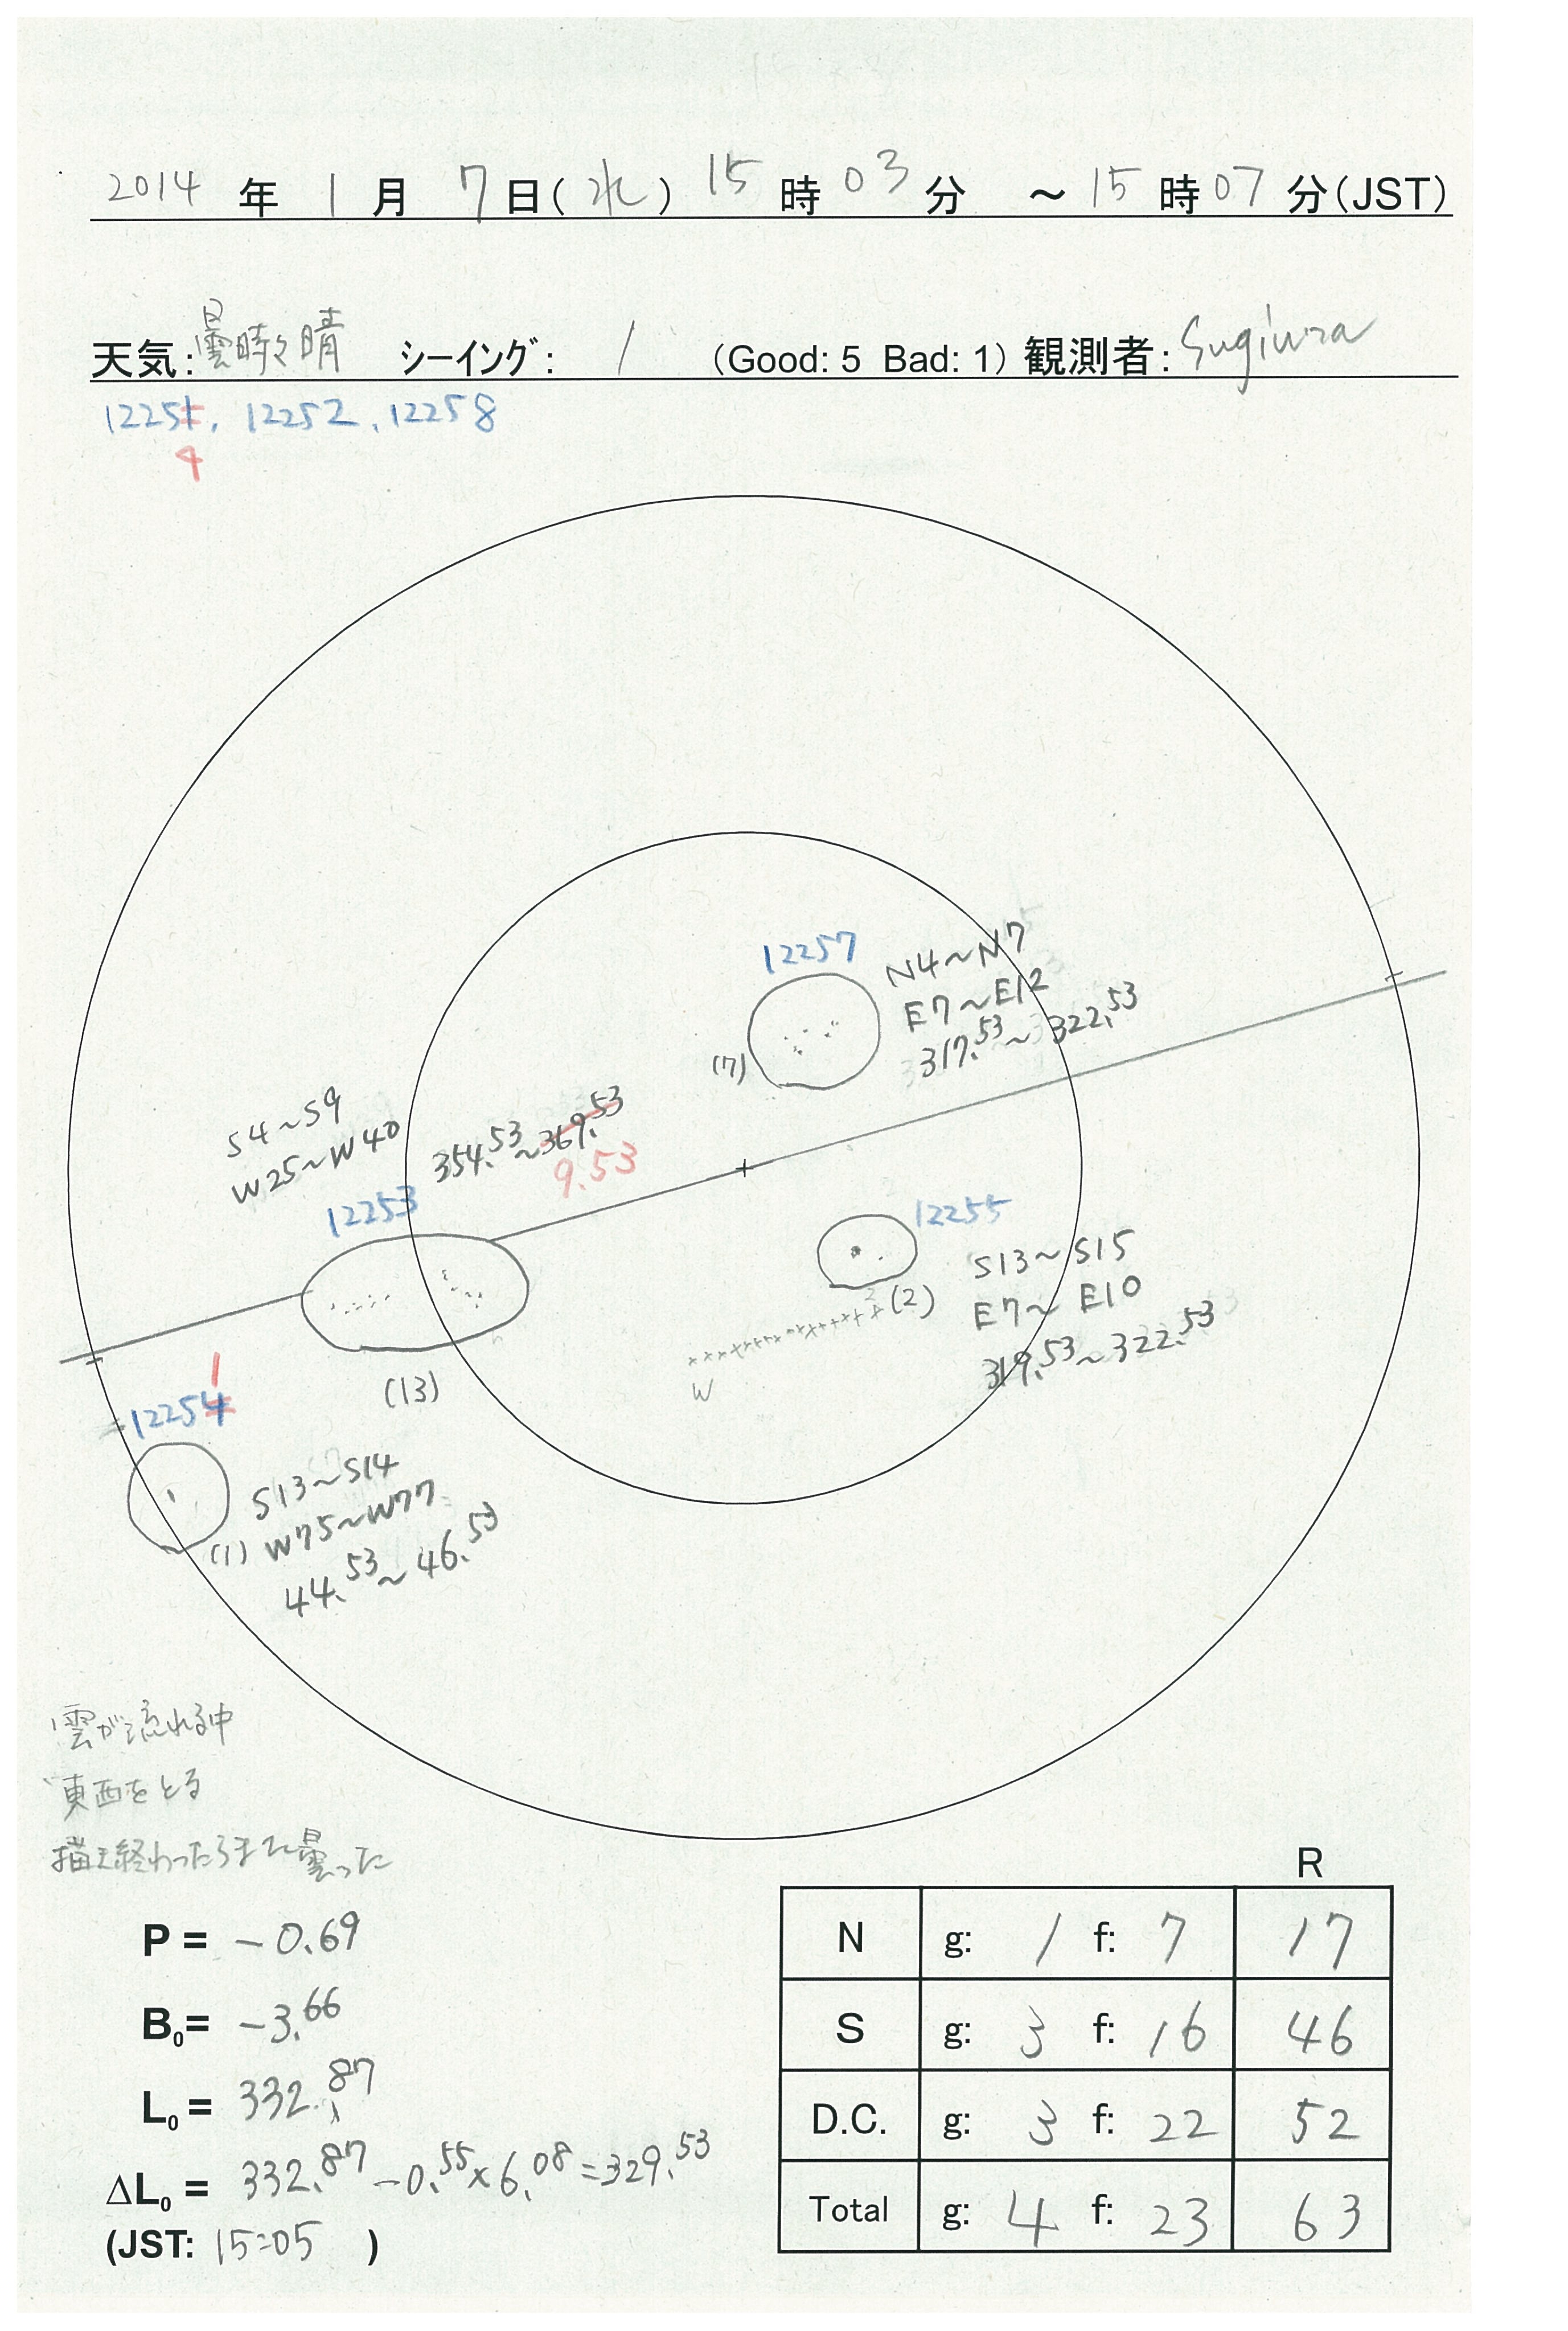 2014 年 1 月 7 日(水) 15 時 03 分 ～15 時 07 分(JST)
天気:曇時々晴 シーイング: 1 (Good: 5 Bad: 1) 観測者: Sugiura
12251, 12252, 12258
4
12257
N4～N7
E7～E12
317.53～322.53
(7)
S4～S9
W25～W40
354.53～369.53
9.53
12253
(13)
12255
S13～S15
E7～E10
319.53～322.53
(2)
W
1
12254
S13～S14
(1) W75～W77
44.53～46.53
雲が流れる中
東西をとる
描き終わったらまた曇った
P = -0.69
B0= -3.66
L0 = 332.87
ΔL0 = 332.87 -0.55×6.08=329.53
(JST: 15:05 )
R
N g: 1 f: 7 17
S g: 3 f: 16 46
D.C. g: 3 f: 22 52
Total g: 4 f: 23 63